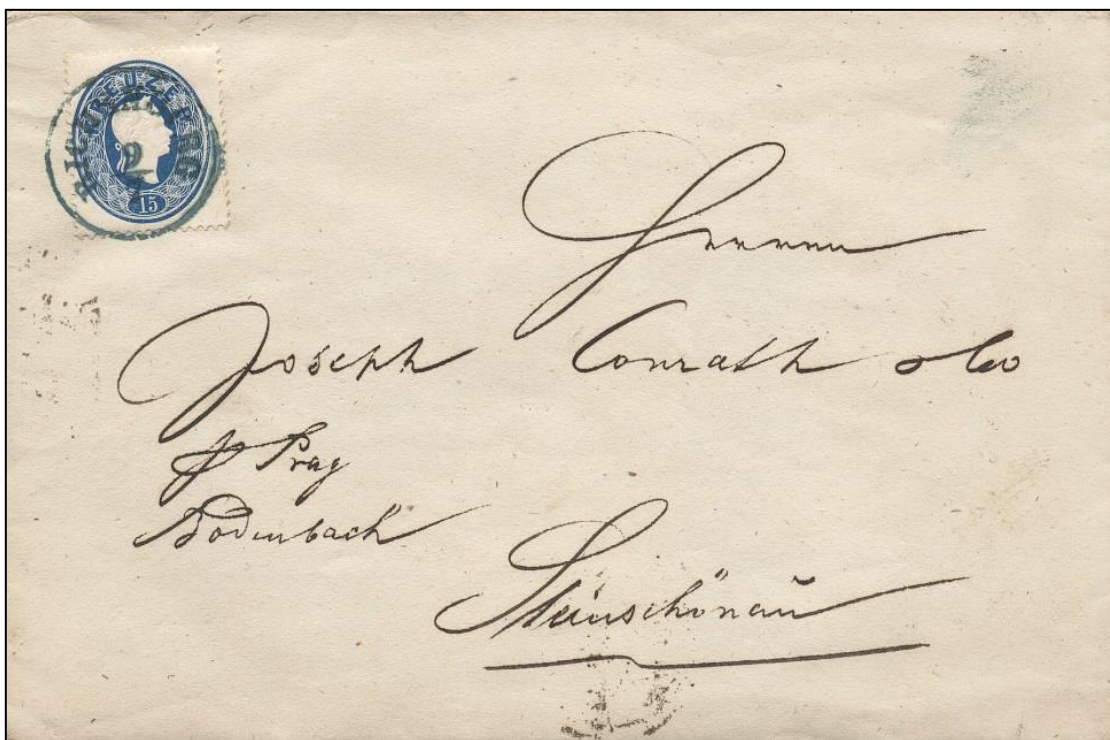 KREUZER
REICHENBERG
9
7
15
Herren
Joseph Conrath & Co
pr Prag
Bodenbach
Steinschönau